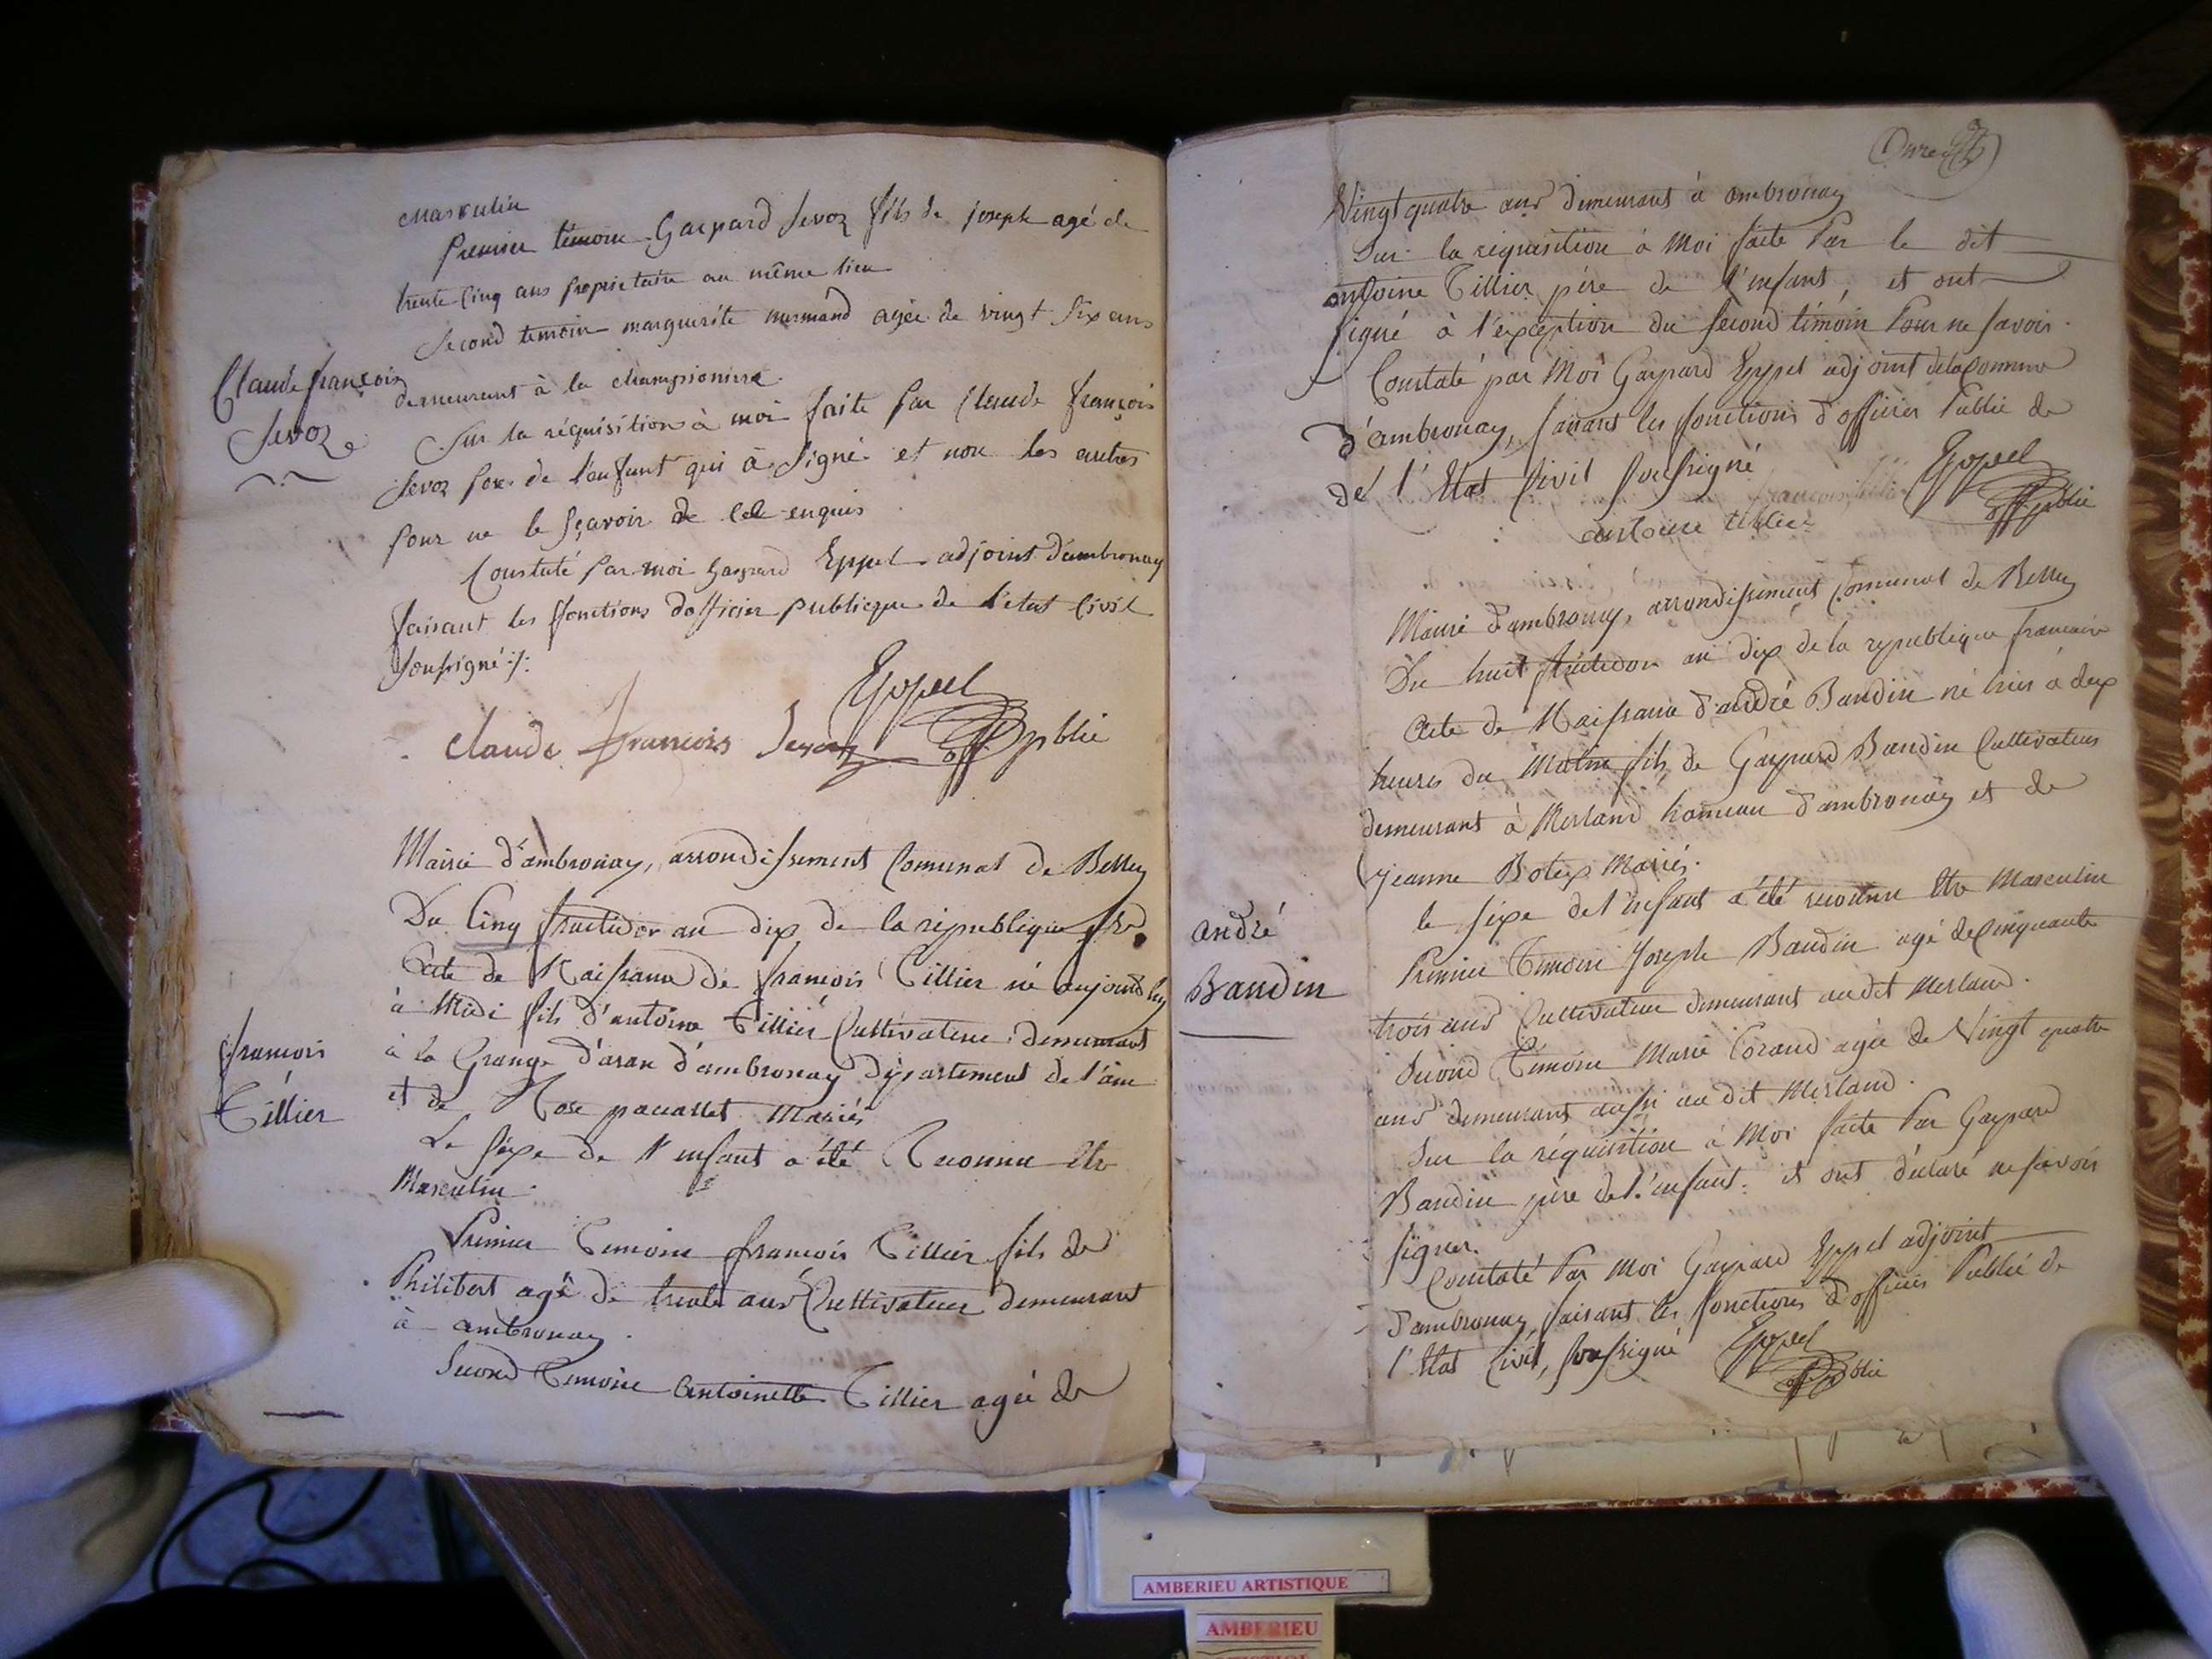 masculin
Premier témoin Gaspard Sevoz fils de joseph agé de
trente cinq ans propriétaire au même lieu
Second temoin marguerite normand agée de vingt six ans
demeurant à la championière
Sur la réquisition à moi faite par Claude françois
Sevoz pere de l'enfant qui à signé et non les autres
pour ne le sçavoir de ce enquis
Constaté par moi Gaspard Eppel adjoint d'ambronay
faisant les fonctions d'officier publique de l'état civil
soussigné ./.
Claude françois
Sevoz
Eppel
claude francois Sevoz off. pblic
Mairie d'ambronay, arrondissement Comunal de Belley
Du Cinq fructidor an dix de la république fse
Acte de Naissance de françois Tillier né aujourd'huy
à Midi fils d'antoine Tillier Cultivateur demeurant
à la Grange d'aran d'ambronay département de l'ain
et de Rose pauallet Mariés
Le sexe de l'enfant a été Reconnu etre
Masculin
francois
Tillier
Premier Temoin francois Tillier fils de
Philibert agé de trente ans Cultivateur demeurant
à ambronay.
Second Temoin Antoinette Tillier agée de
Vingt quatre ans demeurant à ambronay
Sur la réquisition à Moi faite Par le dit
antoine Tillier père de l'enfant, et ont
signé à l'exception du second témoin Pour ne savoir.
Constaté par Moi Gaspard Eppel adjoint de la Commune
d'ambronay, faisant les fonctions d'officier Public de
de l'Etat Civil soussigné
francois tillier
Eppel
off. pblic
antoine tillier
Mairie d'ambronay, arrondissement Comunal de Belley
Du huit fructidor an dix de la republique francaise
Acte de Naissance d'andré Baudin né hier à dix
heures du Matin fils de Gaspard Baudin Cultivateur
demeurant à Merland hameau d'ambronay et de
jeanne Botex Mariés.
le sexe de l'enfant a été reconnu etre Masculin
andré
Baudin
Premier Temoin joseph Baudin agé de Cinquante
trois ans Cultivateur demeurant audit Merland.
Second Temoin Marie Corand agée de Vingt quatre
ans demeurant aussi au dit Merland.
Sur la réquisition à Moi faite Par Gaspard
Baudin père de l'enfant. et ont déclaré ne savoir
signer.
Constaté Par Moi Gaspard Eppel adjoint
d'ambronay, faisant les fonctions d'officier Public de
l'Etat Civil, soussigné Eppel
off. pblic
AMBERIEU ARTISTIQUE
AMBERIEU